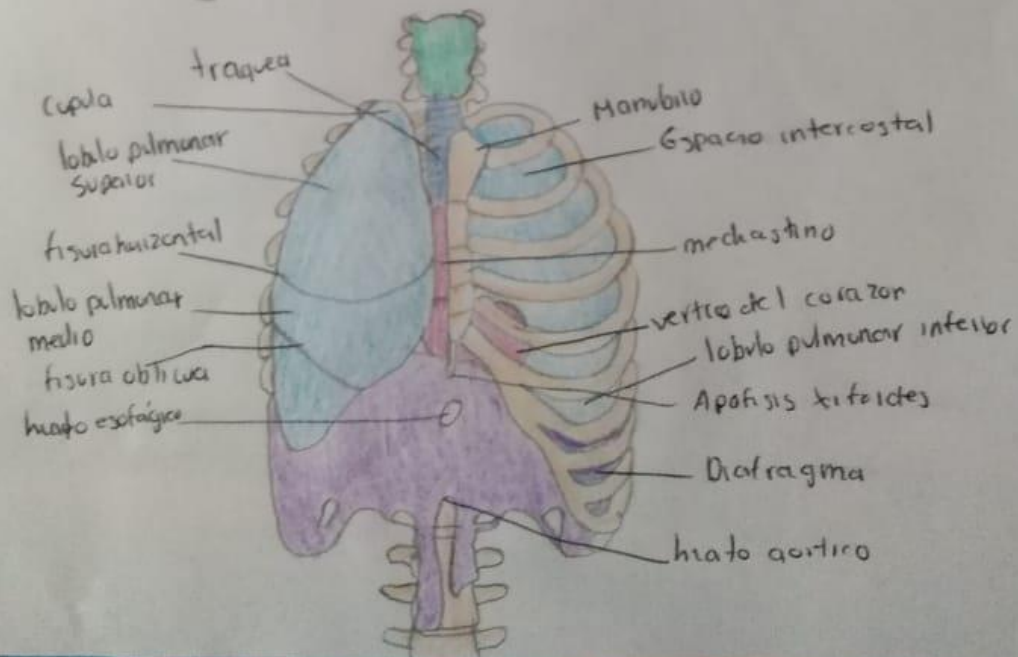 traquea
Cupula
lobulo pulmunar
superior
fisura huizontal
lobulo pulmunar
medio
fisura oblicua
hiato esofágico
Manubrio
Espacio intercostal
mediastino
vertice del corazon
lobulo pulmunar inferior
Apofisis xifoides
Diafragma
hiato aortico